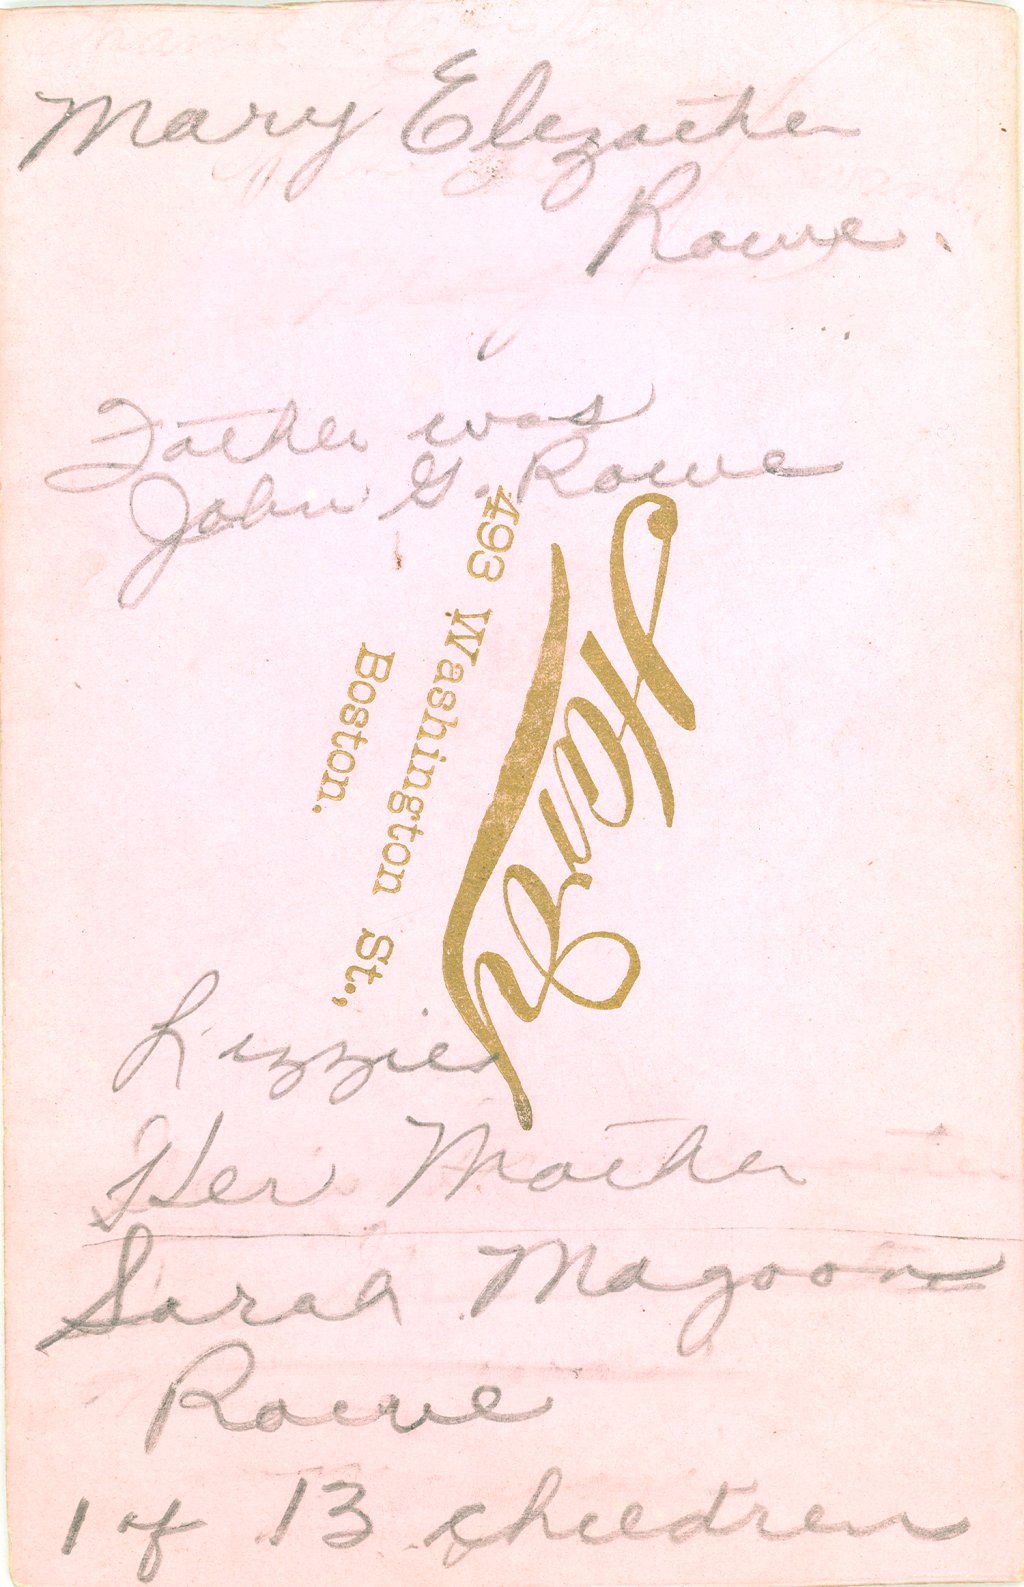 Mary Elizaether
Rowe.
Father was
John G. Rowe
Hardy
493 Washington St.,
Boston.
Lizzie
Her Mother
Sarah Magoon
Rowe
1 of 13 children